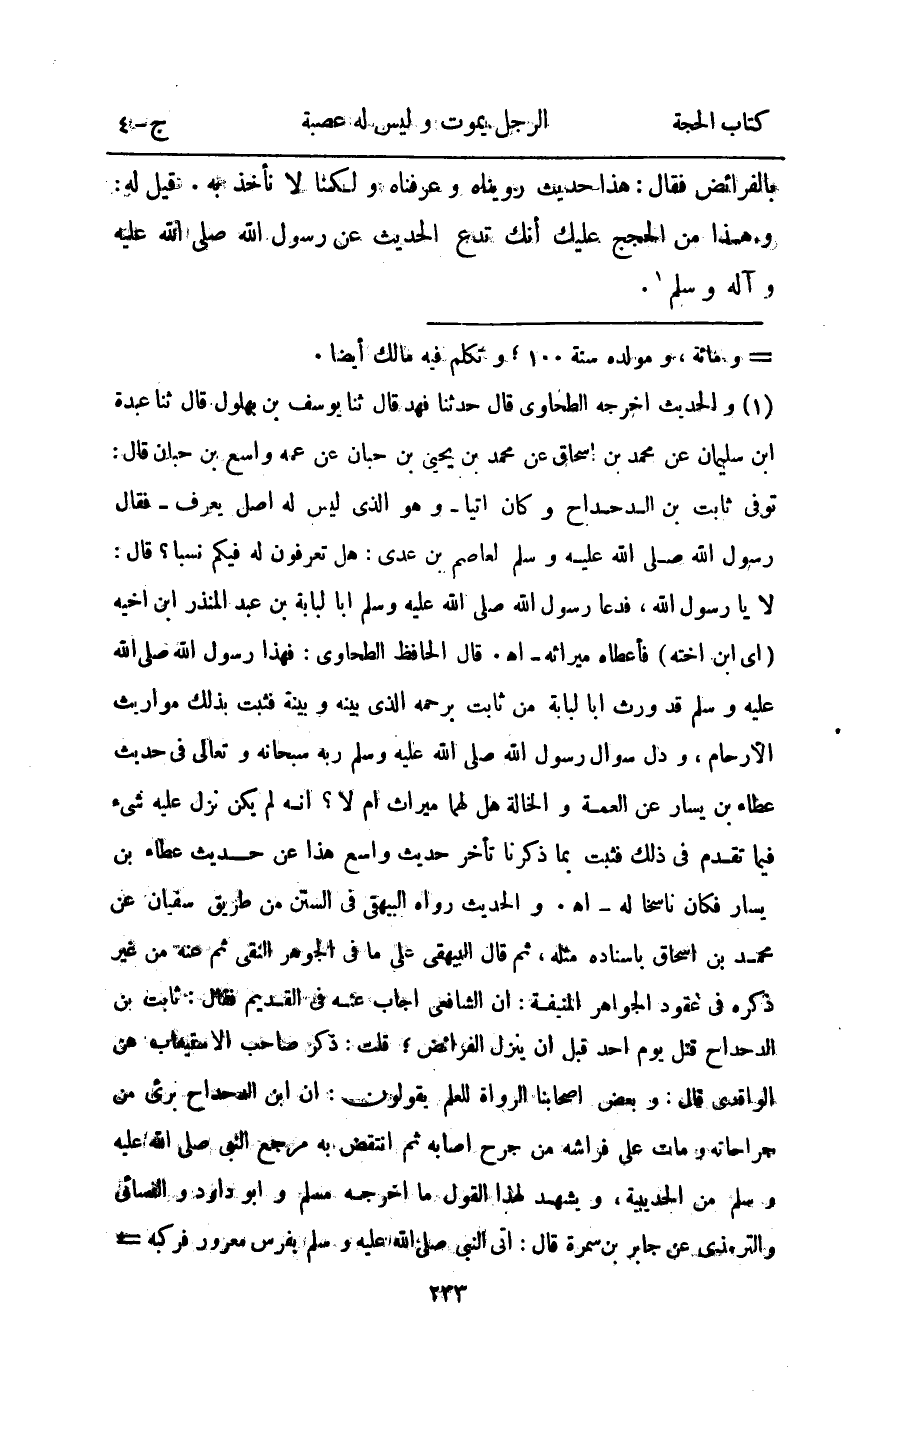 كتاب الحجة الرجل يموت و ليس له عصبة ج-٤
بالفرائض فقال : هذا حديث رويناه و عرفناه و لكنا لا نأخذ به . قيل له :
و هذا من الحجج عليك أنك تدع الحديث عن رسول الله صلى الله عليه
و آله و سلم ١ .
= و مائة ، و مولده سنة ١٠٠ ؛ و تكلم فيه مالك أيضا .
(١) و الحديث اخرجه الطحاوى قال حدثنا فهد قال ثنا يوسف بن بهلول قال ثنا عبدة
ابن سليمان عن محمد بن اسحاق عن محمد بن يحيى بن حبان عن عمه واسع بن حبان قال :
توفى ثابت بن الدحداح و كان اتيا ـ و هو الذى ليس له اصل يعرف ـ فقال
رسول الله صلى الله عليه و سلم لعاصم بن عدى : هل تعرفون له فيكم نسبا ؟ قال :
لا يا رسول الله ، فدعا رسول الله صلى الله عليه وسلم ابا لبابة بن عبد المنذر ابن اخيه
( اى ابن اخته ) فأعطاه ميراثه ـ اه . قال الحافظ الطحاوى : فهذا رسول الله صلى الله
عليه و سلم قد ورث ابا لبابة من ثابت برحمه الذى بينه و بينة فثبت بذلك مواريث
الارحام ، و دل سوال رسول الله صلى الله عليه وسلم ربه سبحانه و تعالى فى حديث
عطاء بن يسار عن العمة و الخالة هل لهما ميراث ام لا ؟ انه لم يكن نزل عليه شىء
فيما تقدم فى ذلك فثبت بما ذكرنا تأخر حديث واسع هذا عن حديث عطاء بن
يسار فكان ناسخا له ـ اه . و الحديث رواه البيهقى فى السنن من طريق سفيان عن
محمد بن اسحاق باسناده مثله ، ثم قال البيهقى على ما فى الجوهر النقى ثم عنه من غير
ذكره فى عقود الجواهر المنيفة : ان الشافعى اجاب عنه فى القديم فقال : ثابت بن
الدحداح قتل يوم احد قبل ان ينزل الفرائض ؛ قلت : ذكر صاحب الاستيعاب عن
الواقدى قال : و بعض اصحابنا الرواة للعلم يقولون : ان ابن الدحداح برئ من
جراحاته و مات على فراشه من جرح اصابه ثم انتقض به مرجع النبى صلى الله عليه
و سلم من الحديبية ، و يشهد لهذا القول ما اخرجه مسلم و ابو داود و النسائى
والترمذى عن جابر بن سمرة قال : اتى النبى صلى الله عليه و سلم بفرس معرور فركبه =
٢٣٣